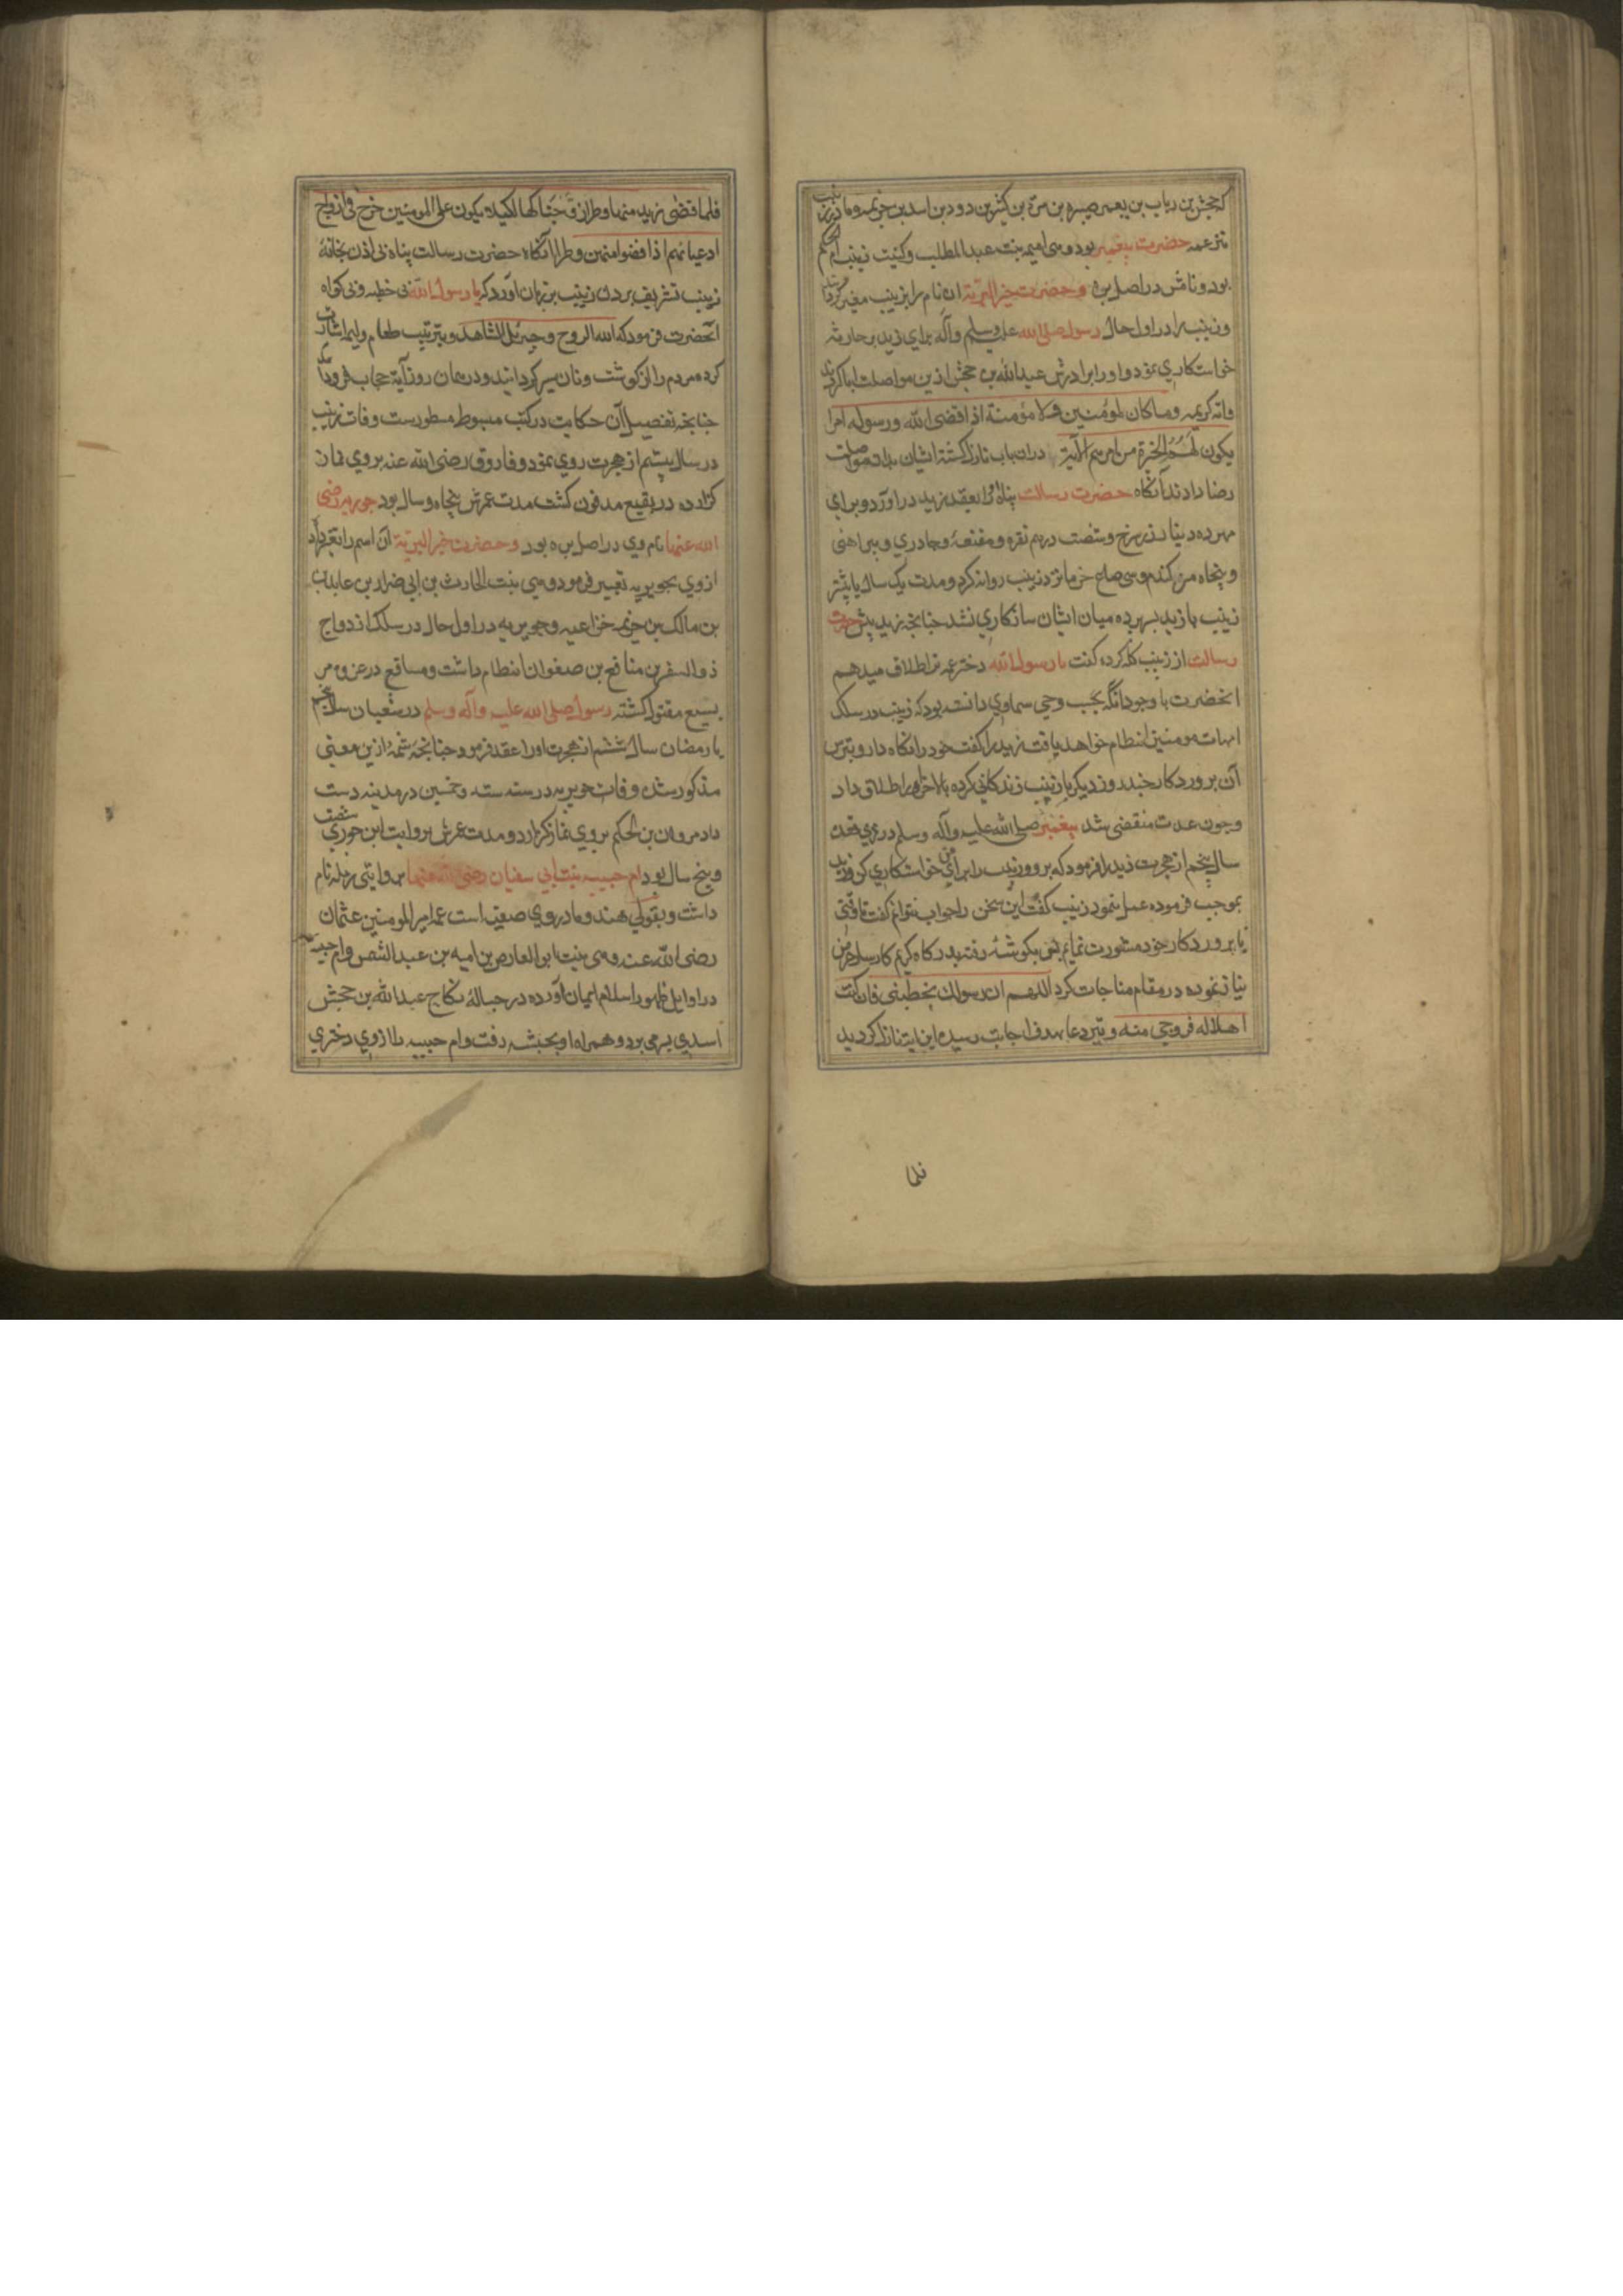 که جحش بن ریاب بن یعمر بن صبره بن مرة بن کثیر بن دودن بن اسد بن خزیمه و مادر زینب
نیز عمه حضرت پیغمبر بود و هی امیمه بنت عبد المطلب و کنیت زینب ام الحکم
بود و نامش در اصل بره و حضرت خیر البریة ان نام را بزینب مغیر گردانید
و زینب را در اول حال رسول صلی الله علیه وسلم وآله برای زید بن حارثه
خواستکاری نمود و او و برادرش عبدالله بن جحش ازین مواصلت ابا کردند
وآیه کریمه وما کان لمؤمنین ولا مؤمنة اذا قضی الله ورسوله امرا
یکون لهم الخیرة من امرهم الآیة دران باب نازل گشته ایشان بدان مواصلت
رضا دادند آنگاه حضرت رسالت پناه او را بعقد زید در آورد و برای
مهر ده دینار زر سرخ و شصت درهم نقره و مقنعه و چادری و پیراهنی
و پنجاه من گندم و سی صاع خرما نزد زینب روانه کرد و مدت یک سال یا بیشتر
زینب با زید بسر برده میان ایشان سازکاری نشد چنانچه زید پیش حضرت
رسالت از زینب گله کرده گفت یا رسول الله دختر عمه ترا طلاق میدهم
انحضرت با وجود آنکه بحسب وحی سماوی دانسته بود که زینب در سلک
امهات مومنین انتظام خواهد یافت زید را گفت خود را نگاه دار و بترس
آن پروردگار چند روز دیگر با زینب زندکانی کرده بالاخره او را طلاق داد
وچون عدت منقضی شد پیغمبر صلی الله علیه وآله وسلم در ذی قعده
سال پنجم از هجرت زید را فرمود که برو و زینب را برای من خواستکاری کن و زید
بموجب فرموده عمل نمود زینب گفت این سخن را جواب نتوانم گفت تا وقتی
با پروردکار خود مشورت نمایم پس بگوشهٔ رفته بدرگاه کریم کارساز عرض
نیاز نموده در مقام مناجات کرد اللهم ان رسولک یخطبنی فان کنت
اهلا له فزوجی منه و تیر دعا بهدف اجابت رسیده این ایت نازل کردید
فلما
فلما قضی زید منها وطرا زوجناکها لکیلا یکون علی المومنین حرج فی ازواج
ادعیائهم اذا قضوا منهن وطرا آنگاه حضرت رسالت پناه بی اذن بخانهٔ
زینب تشریف برد و زینب بر زبان آورد که یا رسول الله بی خطبه و بی گواه
آنحضرت فرمود که الله الزوج و جبرئیل الشاهد و بترتیب طعام ولیمه اشارت
کرده مردم را از گوشت و نان سیر گردانیدند و در همان روز آیة حجاب فرود آمد
چنانچه تفصیل آن حکایت در کتب مبسوط مسطورست وفات زینب
در سال بیستم از هجرت روی نمود و فاروق رضی الله عنه بر وی نماز
گزارده در بقیع مدفون گشت مدت عمرش پنجاه و سال بود جویریه رضی
الله عنها نام وی در اصل بره بود و حضرت خیر البریة آن اسم را تغیر داد
از وی بجویریه تعبیر فرمود و هی بنت الحارث بن ابی ضرار بن عاید بن
بن مالک بن خزیمه خزاعیه و جویریه در اول حال در سلک ازدواج
ذو السفر بن منافع بن صفوان انتظام داشت و مسافع در غزوه مر
یسیع مقتول گشته رسول صلی الله علیه وآله وسلم در شعبان سال پنجم
یا رمضان سال ششم از هجرت او را عقد فرمود چنانچه شمهٔ ازین معنی
مذکور شد وفات جویریه در سنه سته و خمسین در مدینه دست
داد مروان بن الحکم بر وی نماز گزارد و مدت عمرش بروایت ابن جوزی شصت
و پنج سال بود ام حبیبه بنت ابی سفیان رضی الله عنها بروایتی رمله نام
داشت و بقولی هند و مادر وی صفیه است عمه امیر المومنین عثمان
رضی الله عنه وهی بنت ابی العاص بن امیه بن عبد الشمس و ام حبیبه
در اوایل ظهور اسلام ایمان آورده در حبالهٔ نکاح عبدالله بن جحش
اسدی بسر می برد و همراه او بحبشه رفت و ام حبیبه را از وی دختری